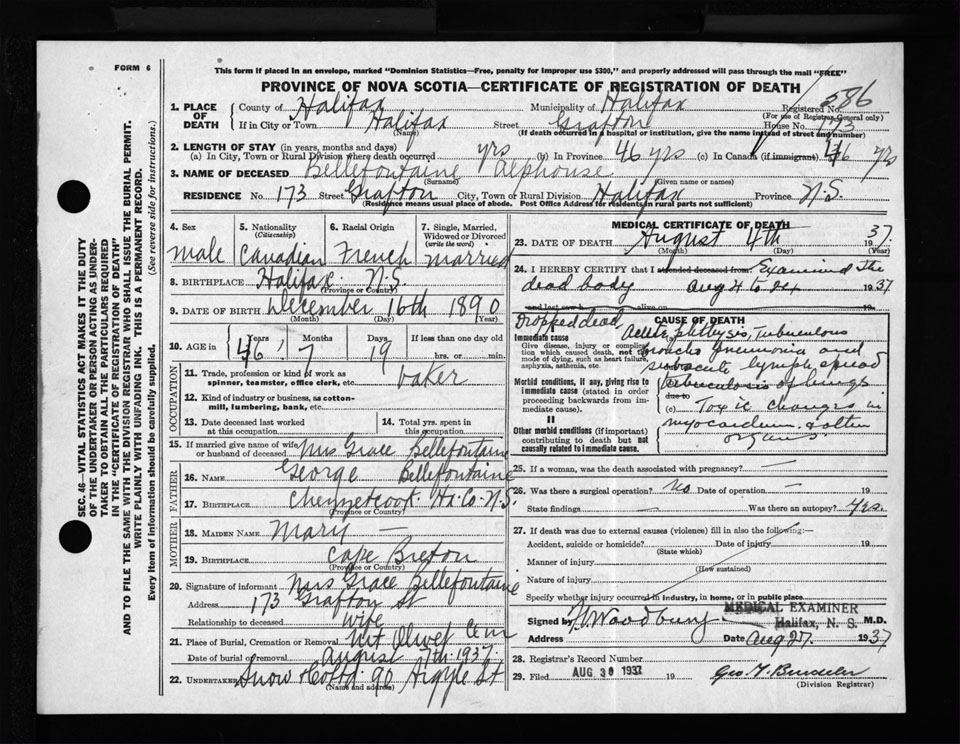 FORM 6
This form if placed in an envelope, marked "Dominion Statistics—Free, penalty for improper use $300," and properly addressed will pass through the mail "FREE"
PROVINCE OF NOVA SCOTIA—CERTIFICATE OF REGISTRATION OF DEATH
1. PLACE OF DEATH County of Halifax Municipality of Halifax Registered No. 586
(For use of Registrar General only)
If in City or Town Halifax Street Grafton House No. 173
(Name) (If death occurred in a hospital or institution, give the name instead of street and number)
2. LENGTH OF STAY (in years, months and days)
(a) In City, Town or Rural Division where death occurred yrs (b) In Province 46 yrs (c) In Canada (if immigrant) 46 yrs
3. NAME OF DECEASED Bellefontaine Alphouse
(Surname) (Given name or names)
RESIDENCE No. 173 Street Grafton City, Town or Rural Division Halifax Province N.S.
(Residence means usual place of abode. Post Office Address for residents in rural parts not sufficient)
4. Sex 5. Nationality (Citizenship) 6. Racial Origin 7. Single, Married, Widowed or Divorced (write the word)
male Canadian French married
8. BIRTHPLACE Halifax N.S.
(Province or Country)
9. DATE OF BIRTH December 16th 1890
(Month) (Day) (Year)
10. AGE in Years Months Days If less than one day old
46 7 19 hrs. or min.
OCCUPATION
11. Trade, profession or kind of work as spinner, teamster, office clerk, etc. baker
12. Kind of industry or business, as cotton-mill, lumbering, bank, etc.
13. Date deceased last worked at this occupation 14. Total yrs. spent in this occupation
15. If married give name of wife or husband of deceased Mrs Grace Bellefontaine
FATHER
16. NAME George Bellefontaine
17. BIRTHPLACE Chezzetcook Hx Co N.S.
(Province or Country)
MOTHER
18. MAIDEN NAME Mary —
19. BIRTHPLACE Cape Breton
(Province or Country)
20. Signature of informant Mrs Grace Bellefontaine
Address 173 Grafton St
Relationship to deceased wife
21. Place of Burial, Cremation or Removal Mt Olivet Cem
Date of burial or removal August 7th 1937
22. UNDERTAKER Snow & Co Ltd 90 Argyle St
(Name and address)
MEDICAL CERTIFICATE OF DEATH
23. DATE OF DEATH August 4th 1937.
(Month) (Day)
24. I HEREBY CERTIFY that I attended deceased from Examined the
dead body Aug 4 to 24 1937
and last saw h alive on 19
CAUSE OF DEATH
Dropped dead,
Immediate cause Acute phthysis, Tuberculous
Give disease, injury or complication which caused death, not the mode of dying, such as heart failure, asphyxia, asthenia, etc.
broncho pneumonia and
subacute lymph spread
Morbid conditions, if any, giving rise to immediate cause (stated in order proceeding backwards from immediate cause).
tuberculosis of lungs
due to
(c) Toxic changes in
myocardium & other
organs
II
Other morbid conditions (if important) contributing to death but not causally related to immediate cause.
25. If a woman, was the death associated with pregnancy? —
26. Was there a surgical operation? no Date of operation — 19
State findings — Was there an autopsy? Yes.
27. If death was due to external causes (violence) fill in also the following:—
Accident, suicide or homicide? Date of injury 19
(State which)
Manner of injury
(How sustained)
Nature of injury
Specify whether injury occurred in industry, in home, or in public place
Signed by Woodbury M.D.
MEDICAL EXAMINER
Halifax, N. S.
Address Date Aug 27. 1937
28. Registrar's Record Number
29. Filed AUG 30 1937 19
(Division Registrar)
SEC. 46—VITAL STATISTICS ACT MAKES IT THE DUTY
OF THE UNDERTAKER OR PERSON ACTING AS UNDER-
TAKER TO OBTAIN ALL THE PARTICULARS REQUIRED
IN THE "CERTIFICATE OF REGISTRATION OF DEATH"
AND TO FILE THE SAME WITH THE DIVISION REGISTRAR WHO SHALL ISSUE THE BURIAL PERMIT.
WRITE PLAINLY WITH UNFADING INK. THIS IS A PERMANENT RECORD.
Every item of information should be carefully supplied. (See reverse side for instructions.)